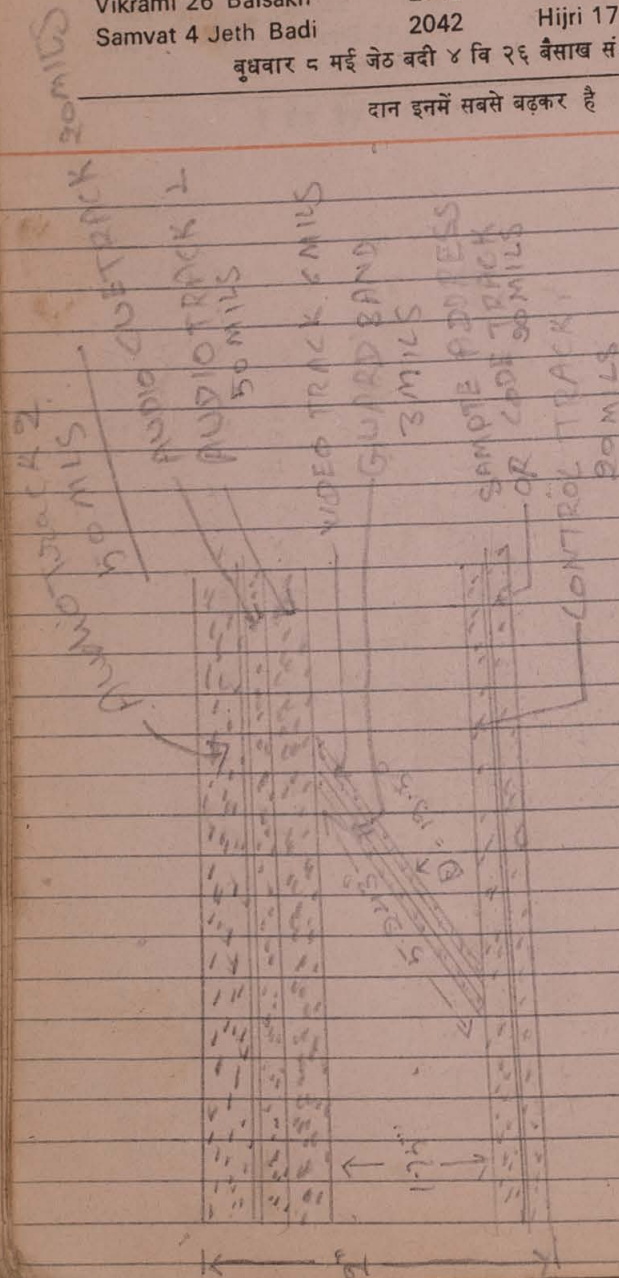 Vikrami 26 Baisakh
Samvat 4 Jeth Badi 2042 Hijri 17
बुधवार ८ मई जेठ बदी ४ वि २६ बैसाख सं
दान इनमें सबसे बढ़कर है
AUDIO TRACK 2
50 MILS
AUDIO CUETRACK 20 MILS
AUDIO TRACK 1
50 MILS
VIDEO TRACK 6 MILS
GUARD BAND
3 MILS
SAMPTE ADDRESS
OR CODE TRACK
20 MILS
CONTROL TRACK,
20 MILS
1.75"
2"